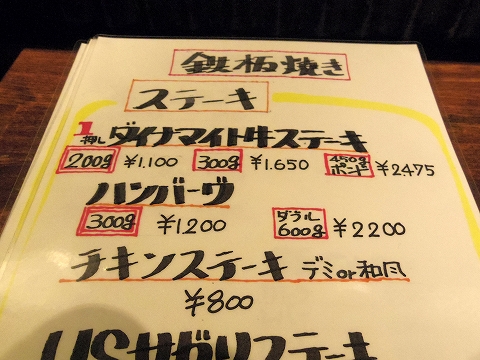 鉄板焼き
ステーキ
1押し ダイナマイト牛ステーキ
200g ¥1.100 300g ¥1.650 450gポンド ¥2475
ハンバーグ
300g ¥1200 ダブル600g ¥2200
チキンステーキ デミor和風
¥800
USサガリステーキ